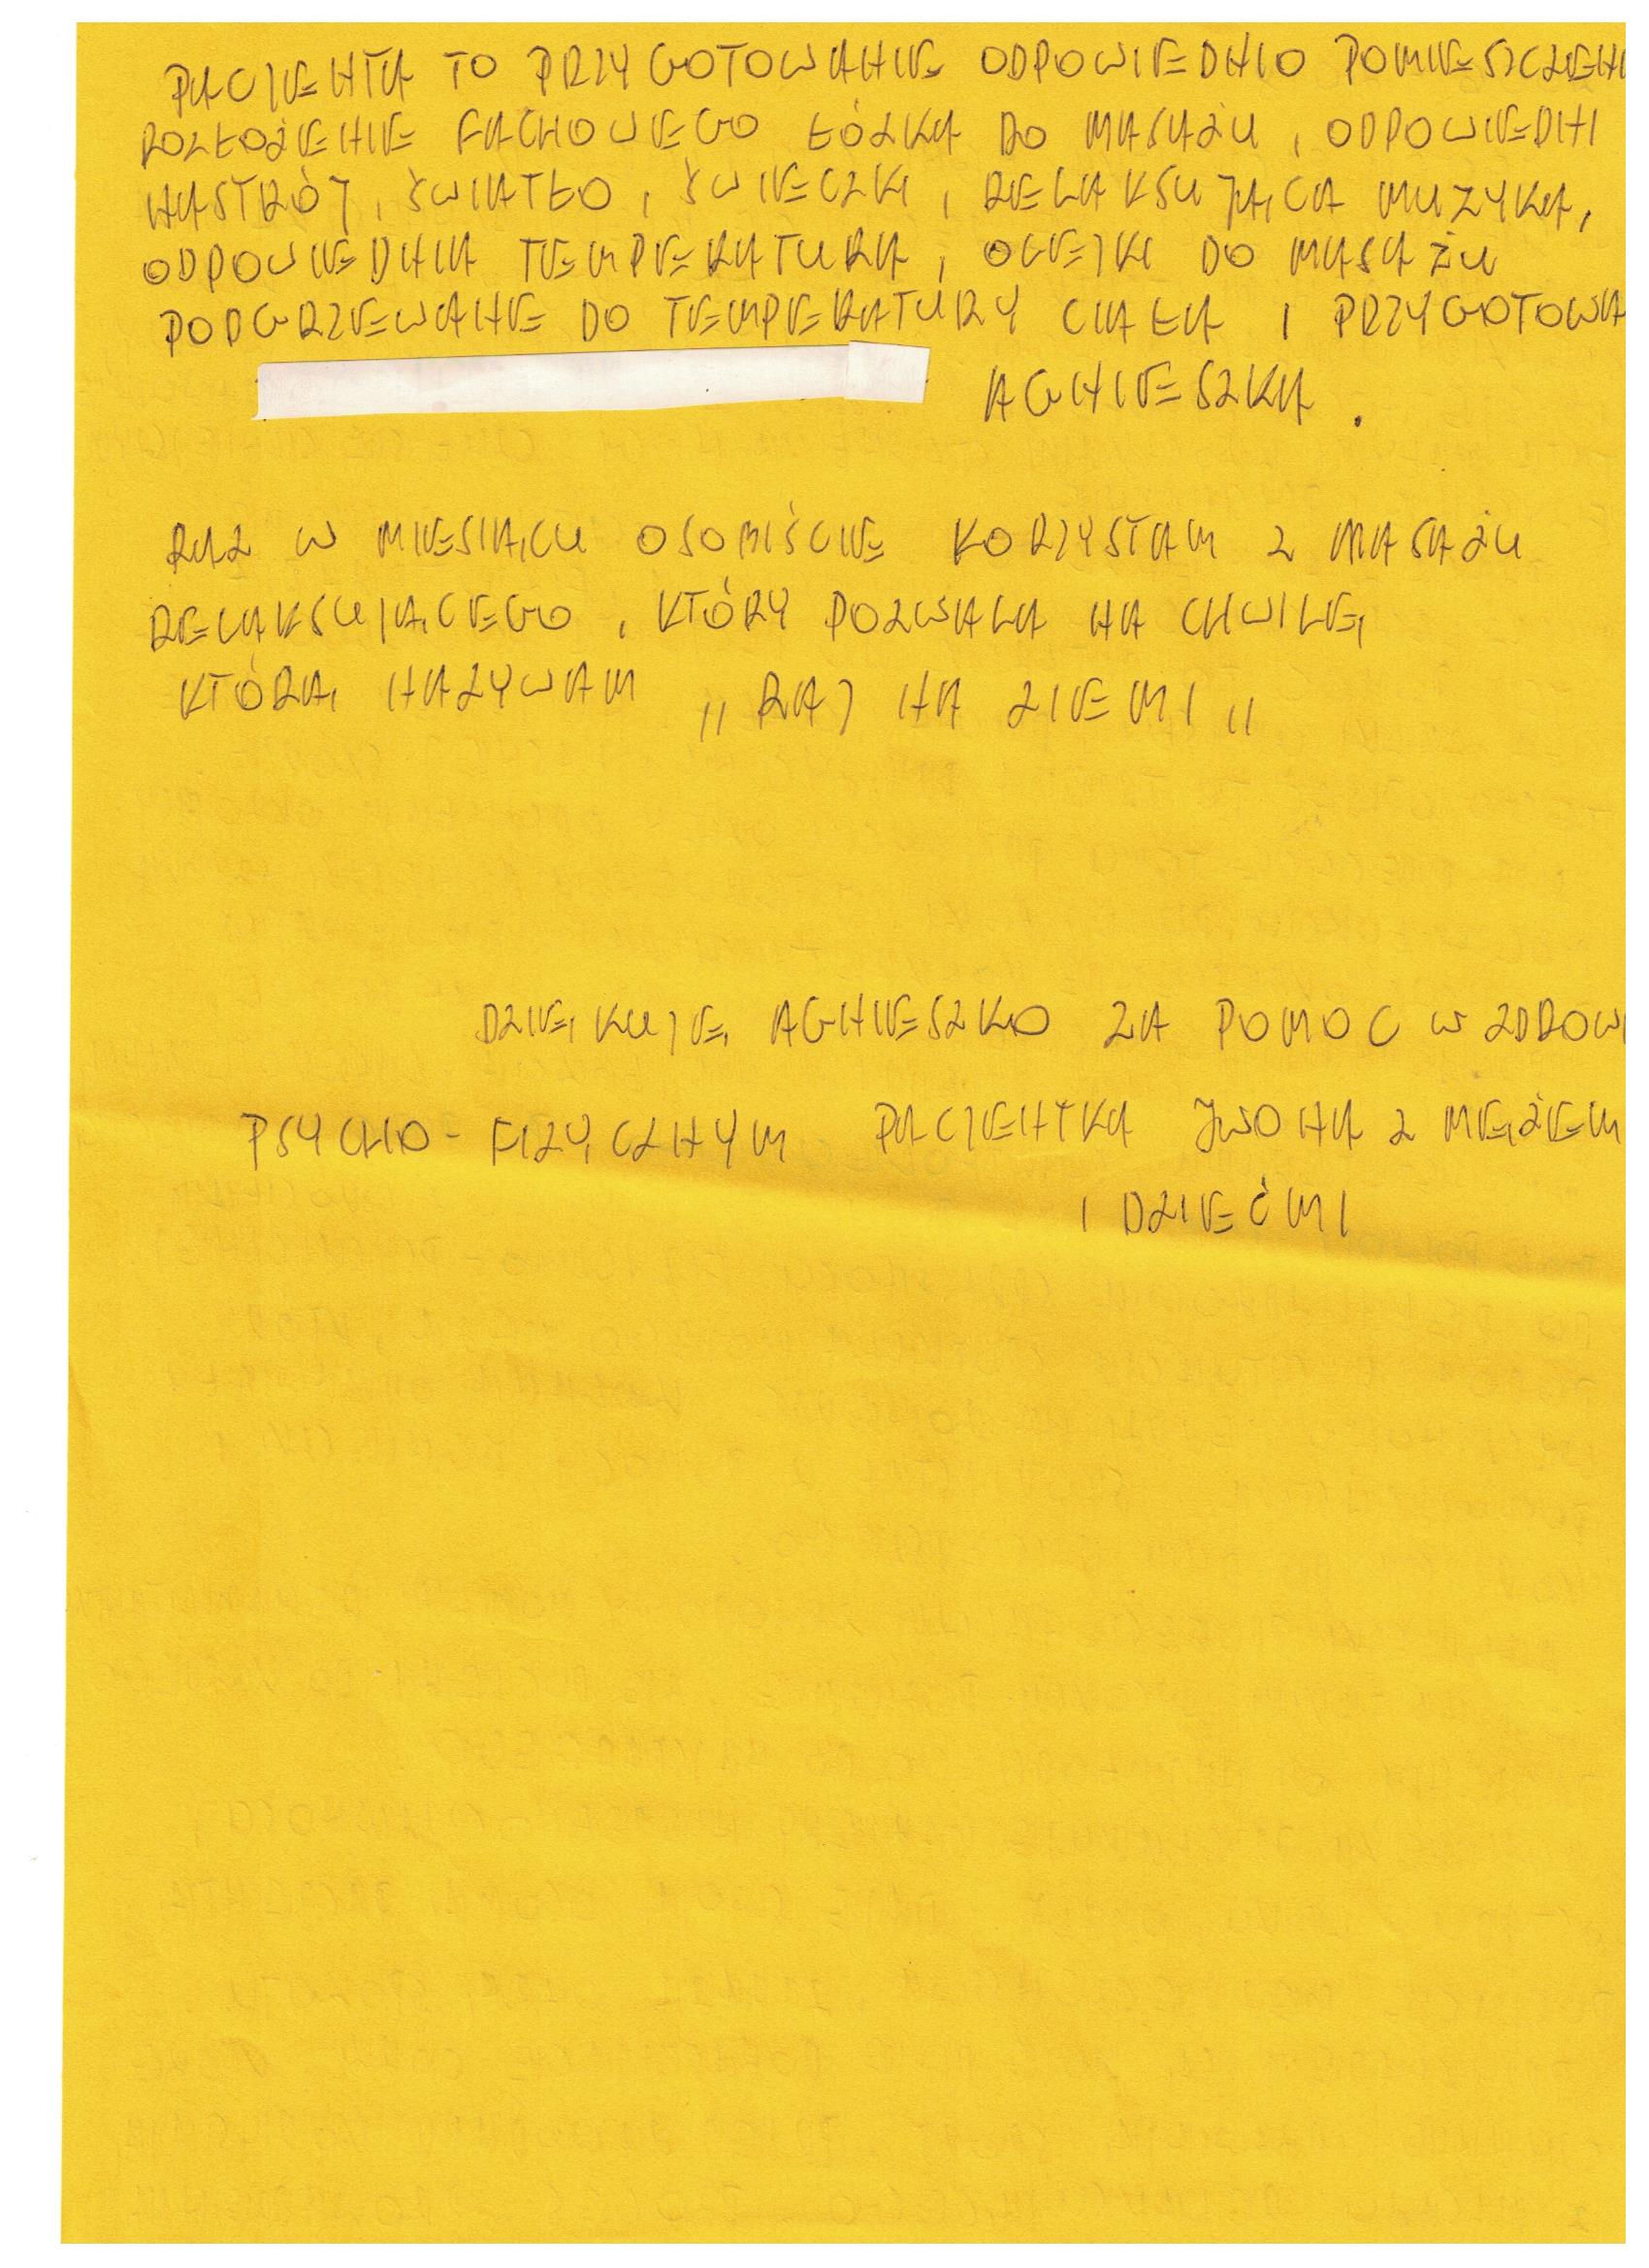 PACJENTA TO PRZYGOTOWANIE ODPOWIEDNIO POMIESZCZENI
ROZŁOŻENIE FACHOWEGO ŁÓZKA DO MASAŻU, ODPOWIEDNI
NASTRÓJ, ŚWIATŁO, ŚWIECZKI, RELAKSUJĄCA MUZYKA,
ODPOWIEDNIA TEMPERATURA, OLEJKI DO MASAŻU
PODGRZEWANE DO TEMPERATURY CIAŁA I PRZYGOTOWA
AGNIESZKA.
RAZ W MIESIĄCU OSOBIŚCIE KORZYSTAM Z MASAŻU
RELAKSUJĄCEGO, KTÓRY POZWALA NA CHWILĘ,
KTÓRĄ NAZYWAM „RAJ NA ZIEMI„
DZIĘKUJĘ AGNIESZKO ZA POMOC W ZDROWI
PSYCHO-FIZYCZNYM PACJENTKA IWONA Z MĘŻEM
I DZIEĆMI